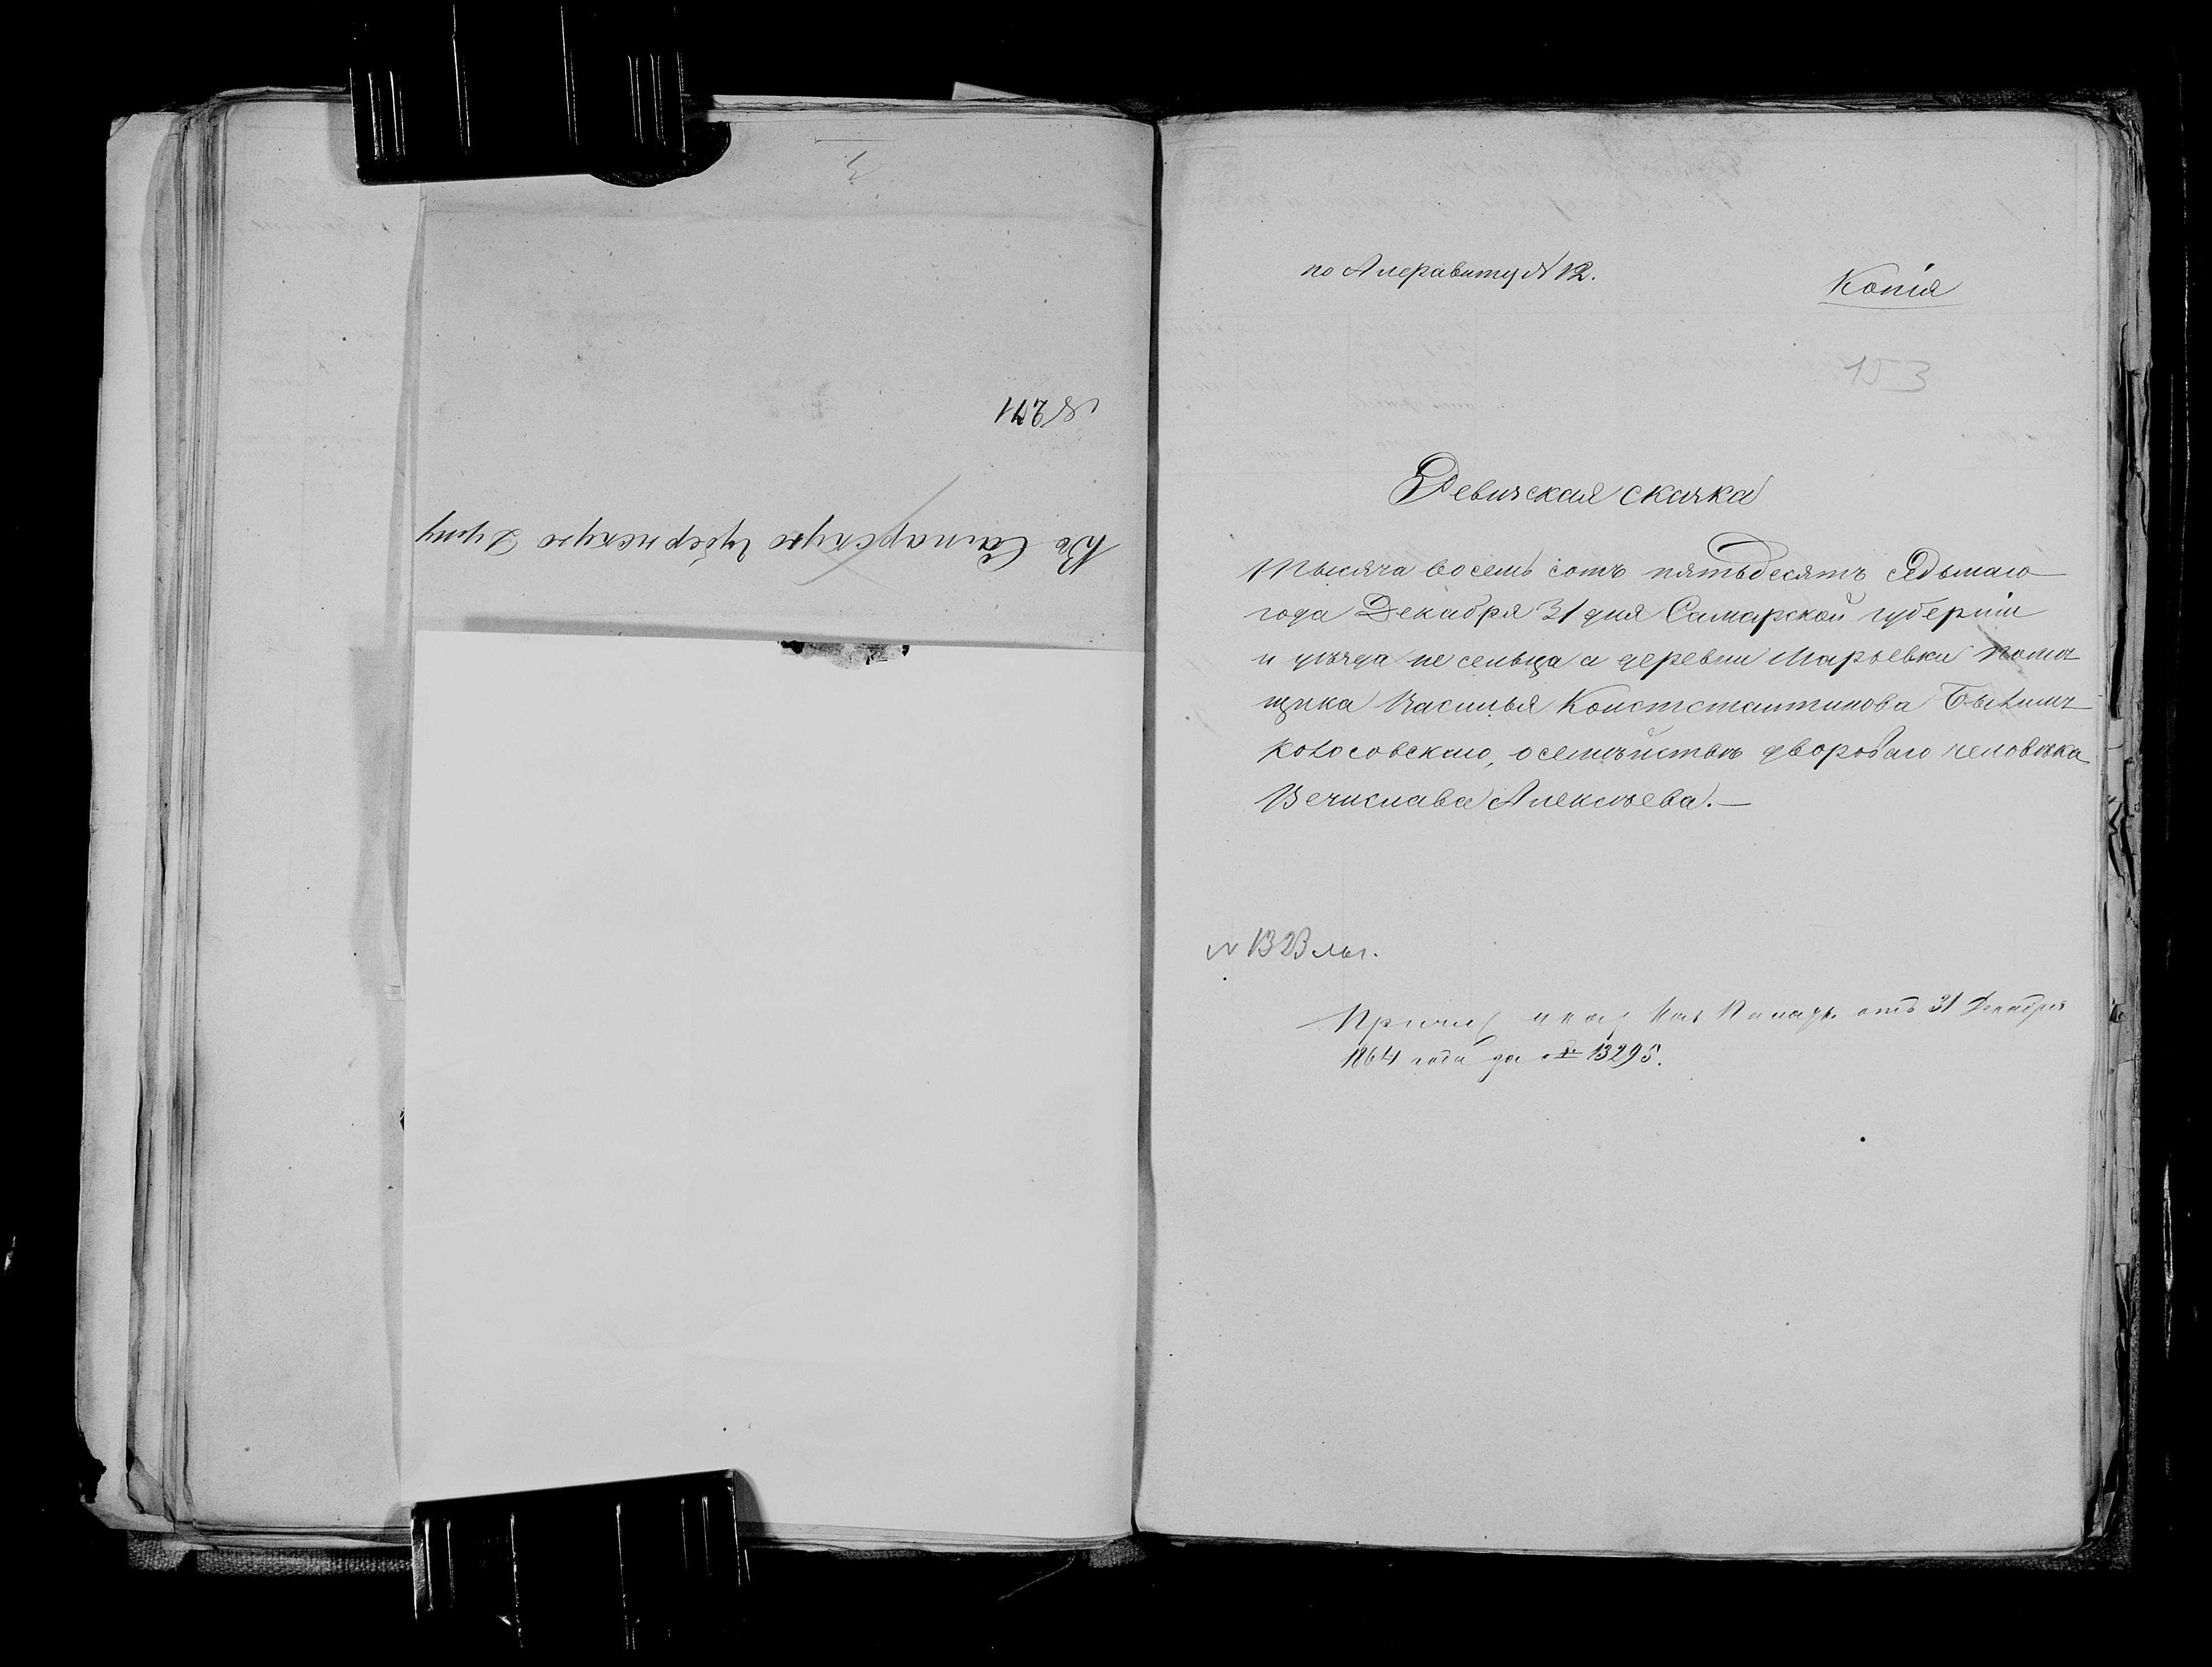 № 271
Въ Самарскую Губернскую Думу
по Алфавиту № 12.
Копія
153
Ревизская сказка
Тысяча восемь сотъ пятьдесятъ седьмаго
года Декабря 31 дня Самарской губерніи
и уѣзда сельца а деревни Марьевки поме
щика Василья Константинова
о семѣйствѣ двороваго человѣка
Вечислава Алексѣева.—
№ 1323
отъ 31 Декабря
1864 года за № 13295.